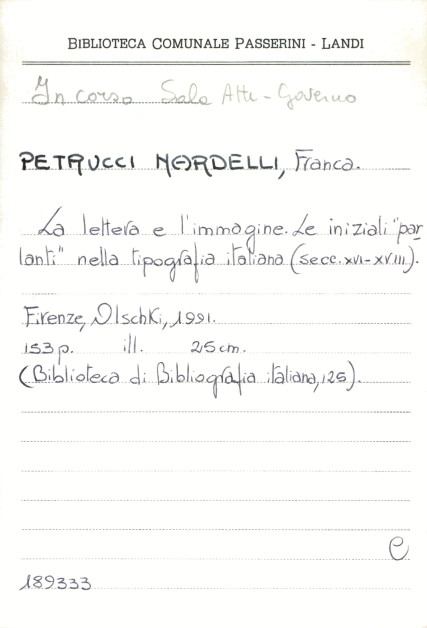 BIBLIOTECA COMUNALE PASSERINI - LANDI
In corso Sala Atti - Governo
PETRUCCI NARDELLI, Franca.
La lettera e l'immagine. Le iniziali "par
lanti" nella tipografia italiana (secc. XVI-XVIII).
Firenze, Olschki, 1991.
153 p. ill. 25 cm.
(Biblioteca di Bibliografia italiana, 125).
C
189333